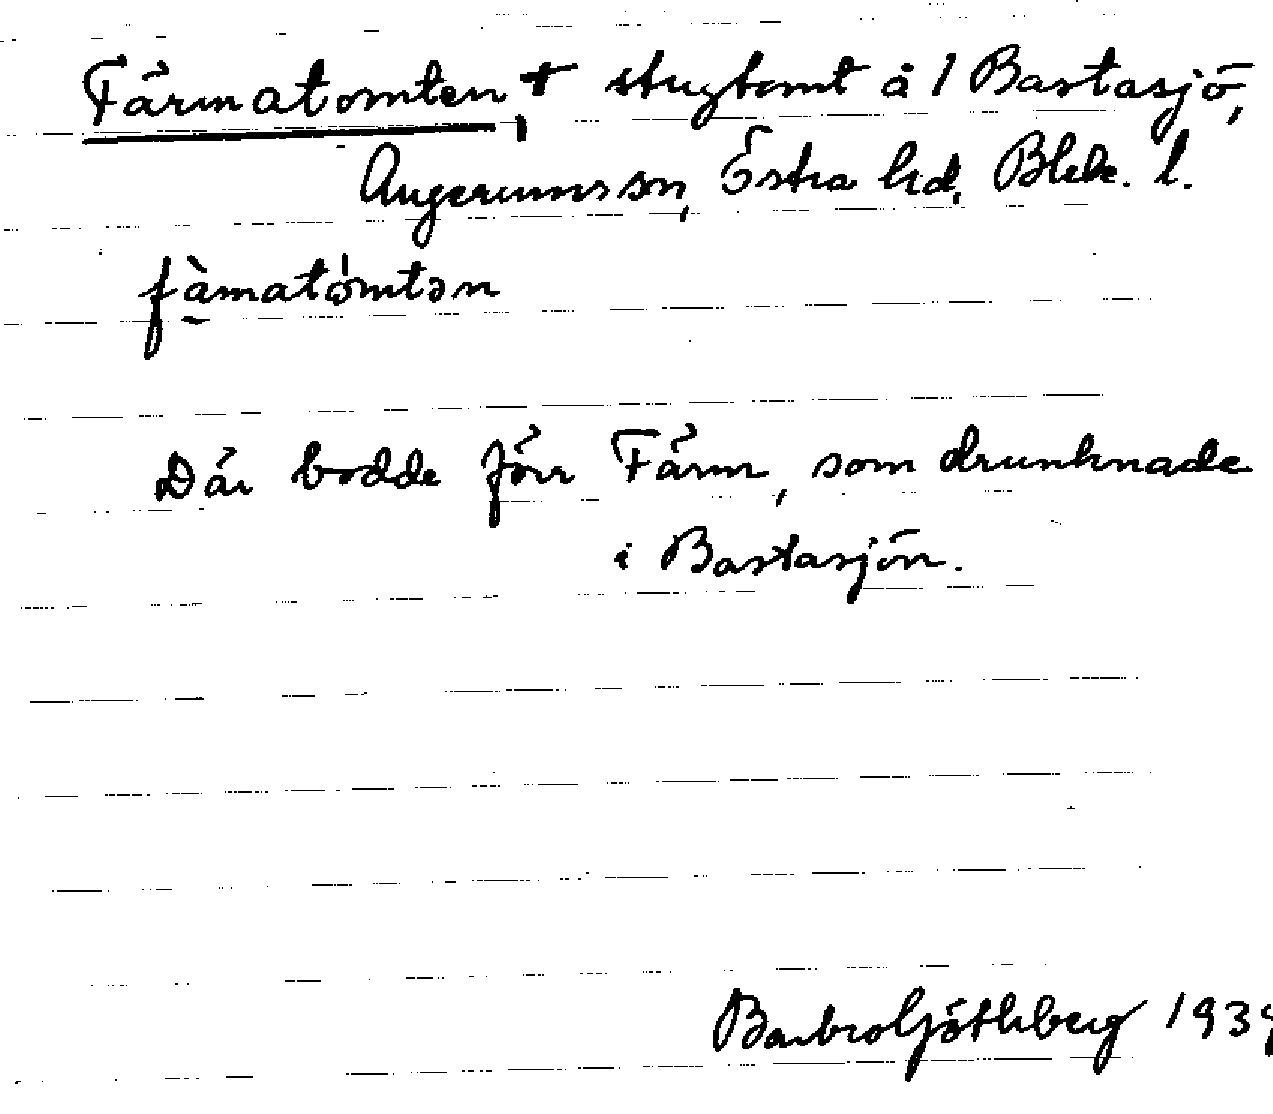 Färmatomten, † stugtomt å 1 Bastasjö,
Augerums sn, Östra hd, Blek. l.
fàmatòmtən
Där bodde förr Färm, som drunknade
i Bastasjön.
Barbro Göthberg 1939